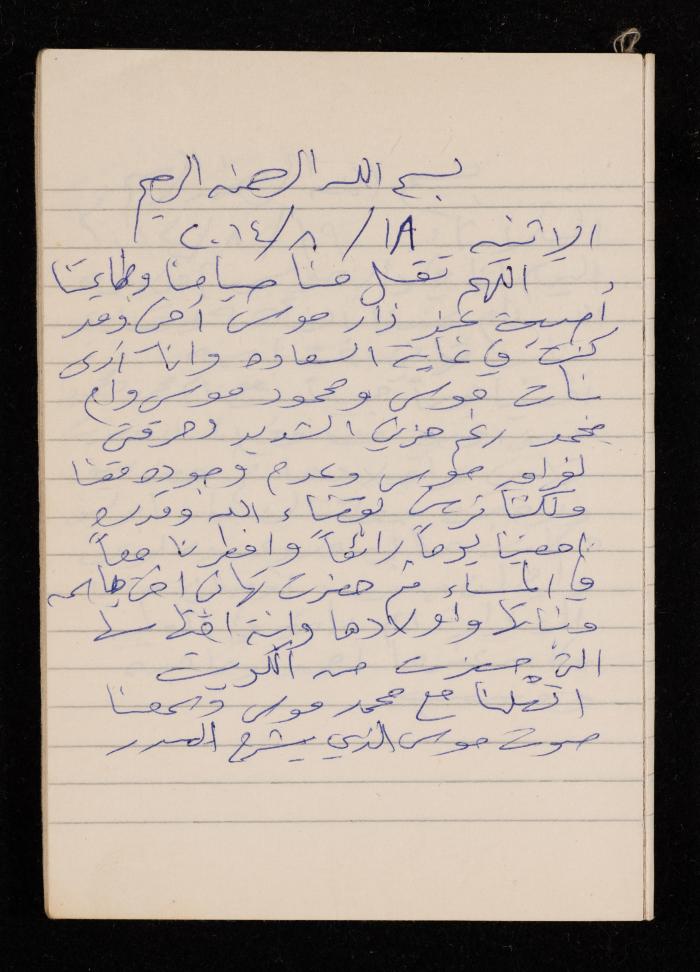 بسم الله الرحمن الرحيم
الاثنين ١٨/٨/٢٠١٤
اللهم تقبل منا صيامنا وطاعتنا
في دار موسى أخي وقد
كنت في غاية السعادة وانا أرى
بنات موسى ومحمود موسى وام
محمد رغم حزني الشديد وحرقتي
لفراق موسى وعدم وجوده معنا
ولكننا نرضى بقضاء الله وقدره
امضينا يوماً رائعاً وافطرنا معاً
في المساء ثم حضرت تهاني اختي
وبناتها واولادها وابنة اختها سها
التي حضرت من الكويت
اتصلنا مع محمد موسى وسمعنا
صوت موسى الذي يشرح الصدر